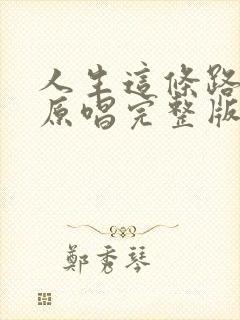 人生這條路
原唱完整版
鄭秀琴